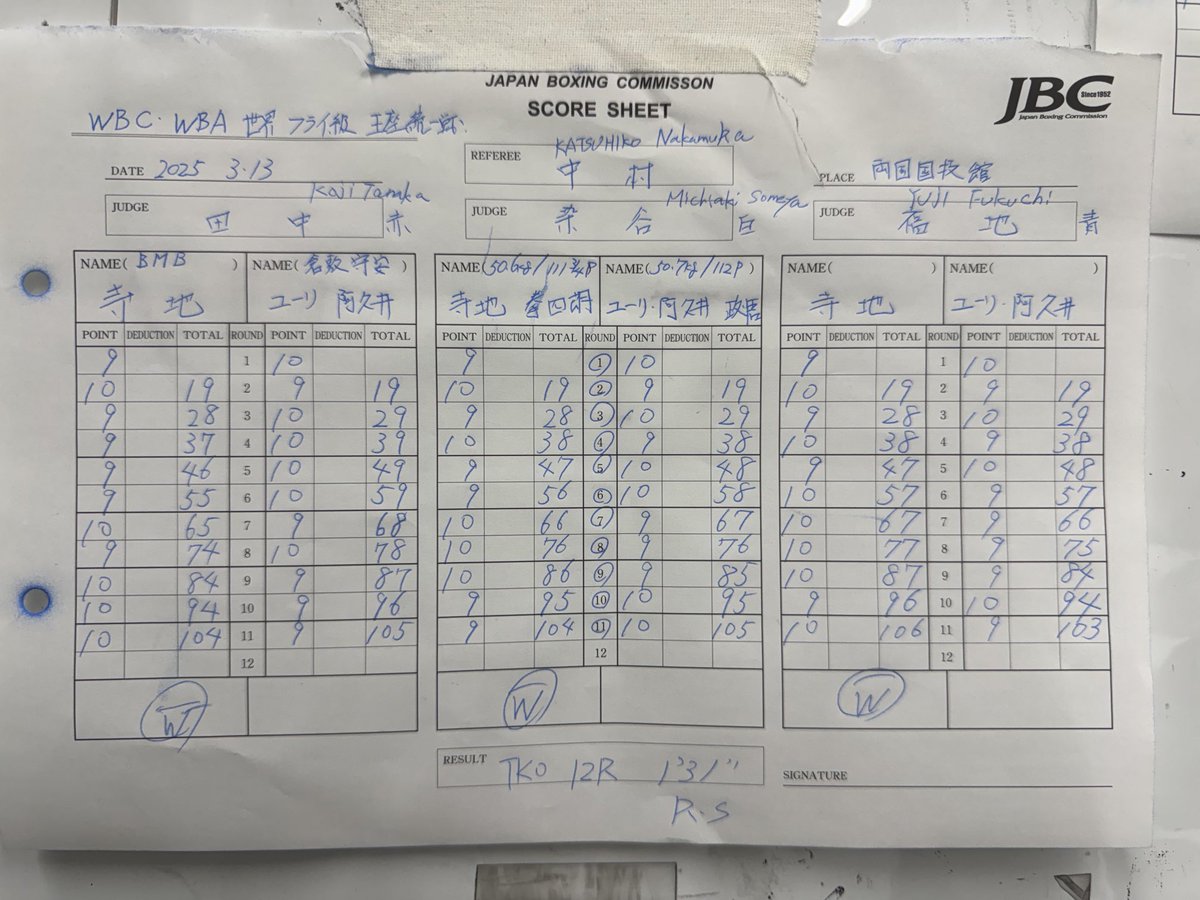 JAPAN BOXING COMMISSON
SCORE SHEET
JBC Since1952
Japan Boxing Commission
WBC・WBA 世界 フライ級 王座統一戦
DATE 2025 3.13
REFEREE KATSUHIKO Nakamura
中村
PLACE 両国国技館
JUDGE Koji Tanaka
田中 赤
JUDGE Michiaki Someya
染谷 白
JUDGE YUJI Fukuchi
福地 青
NAME( BMB ) NAME( 倉敷守安 ) NAME( 50.6kg/111 3/4P NAME( 50.7kg/112P ) NAME( ) NAME( )
寺地 ユーリ 阿久井 寺地 拳四朗 ユーリ・阿久井 政悟 寺地 ユーリ・阿久井
POINT DEDUCTION TOTAL ROUND POINT DEDUCTION TOTAL POINT DEDUCTION TOTAL ROUND POINT DEDUCTION TOTAL POINT DEDUCTION TOTAL ROUND POINT DEDUCTION TOTAL
9 1 10 9 1 10 9 1 10
10 19 2 9 19 10 19 2 9 19 10 19 2 9 19
9 28 3 10 29 9 28 3 10 29 9 28 3 10 29
9 37 4 10 39 10 38 4 9 38 10 38 4 9 38
9 46 5 10 49 9 47 5 10 48 9 47 5 10 48
9 55 6 10 59 9 56 6 10 58 10 57 6 9 57
10 65 7 9 68 10 66 7 9 67 10 67 7 9 66
9 74 8 10 78 10 76 8 9 76 10 77 8 9 75
10 84 9 9 87 10 86 9 9 85 10 87 9 9 84
10 94 10 9 96 9 95 10 10 95 9 96 10 10 94
10 104 11 9 105 9 104 11 10 105 10 106 11 9 103
12 12 12
W W W
RESULT TKO 12R 1'31"
R.S
SIGNATURE